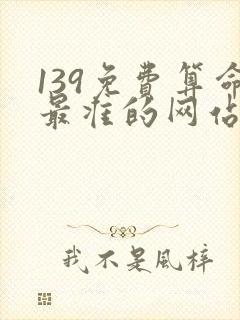 139免费算命
最准的网佔
我不是风梓